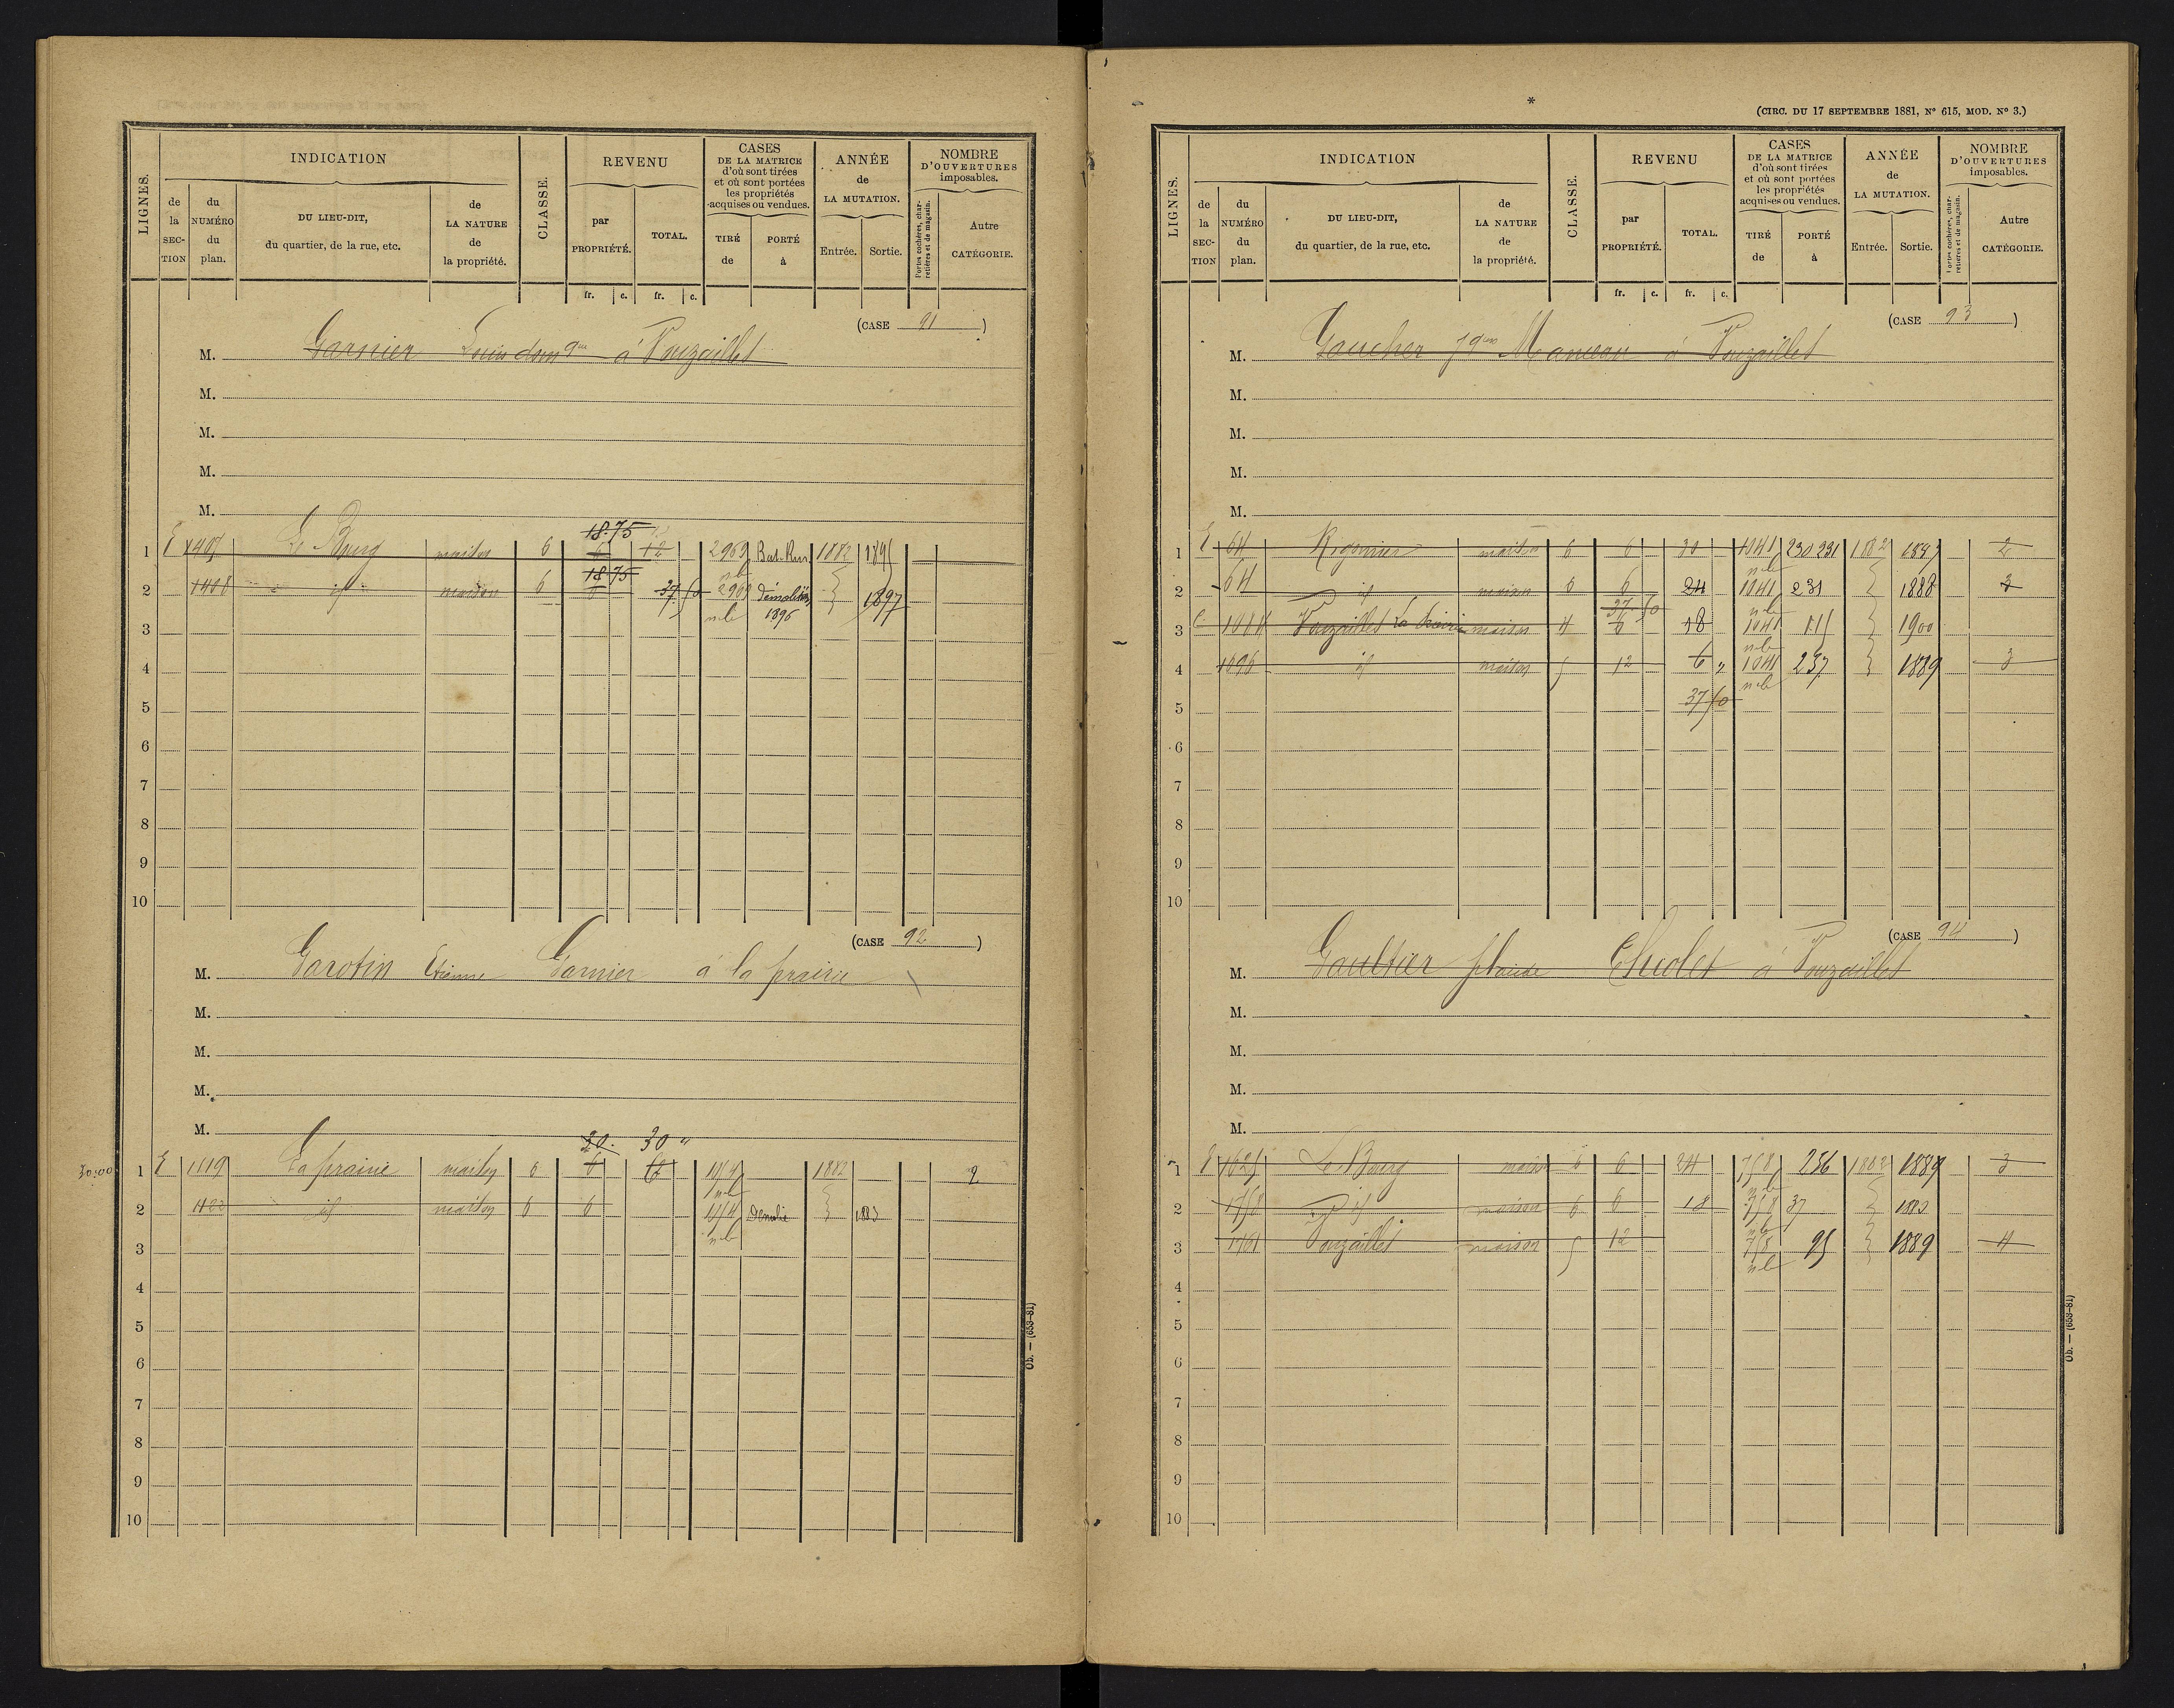 LIGNES.
INDICATION
de la SECTION
du NUMÉRO du plan.
DU LIEU-DIT, du quartier, de la rue, etc.
de LA NATURE de la propriété.
CLASSE.
REVENU
par PROPRIÉTÉ.
TOTAL.
fr. c. fr. c.
CASES DE LA MATRICE d'où sont tirées et où sont portées les propriétés acquises ou vendues.
TIRÉ de
PORTÉ à
ANNÉE de LA MUTATION.
Entrée. Sortie.
NOMBRE D'OUVERTURES imposables.
Portes cochères, charretières et de magasin.
Autre CATÉGORIE.
(CASE 91)
M. Garnier Louis à Pouzaillet
M.
M.
M.
M.
18.75
1 E Le Bourg maison 6 6 12 2969 1882 1895
18 75
2 1408 id maison 6 6 37 50 2969 Démolition 1896 1897
3
4
5
6
7
8
9
10
(CASE 92)
M. Garotin Étienne Garnier à la prairie
M.
M.
M.
M.
20. 30 "
30.00 1 E 1119 La prairie maison 6 6 1882 2
2 1122 id maison 6 6 Démolie 1883
3
4
5
6
7
8
9
10
Ob. — (653-81)
*
(CIRC. DU 17 SEPTEMBRE 1881, N° 615, MOD. N° 3.)
LIGNES.
INDICATION
de la SECTION
du NUMÉRO du plan.
DU LIEU-DIT, du quartier, de la rue, etc.
de LA NATURE de la propriété.
CLASSE.
REVENU
par PROPRIÉTÉ.
TOTAL.
fr. c. fr. c.
CASES DE LA MATRICE d'où sont tirées et où sont portées les propriétés acquises ou vendues.
TIRÉ de
PORTÉ à
ANNÉE de LA MUTATION.
Entrée. Sortie.
NOMBRE D'OUVERTURES imposables.
Portes cochères, charretières et de magasin.
Autre CATÉGORIE.
(CASE 93)
M. Goucher Maneau à Pouzaillet
M.
M.
M.
M.
1 E 64 maison 6 6 30 1041 230 231 1882 2
2 64 id maison 6 6 24 1041 231 1888 3
37 50
3 Pouzaillet maison 4 6 18 1041 115 1900
4 1096 id maison 5 12 6 " 1041 237 1889 3
37 50
5
6
7
8
9
10
(CASE 94)
M. Gaultier à Pouzaillet
M.
M.
M.
M.
1 E 1625 Le Bourg maison 6 6 24 758 236 1882 1889 3
2 1758 id maison 6 6 18 758 37 1883
3 1761 Pouzaillet maison 5 12 758 95 1889 4
4
5
6
7
8
9
10
Ob. — (653-81)